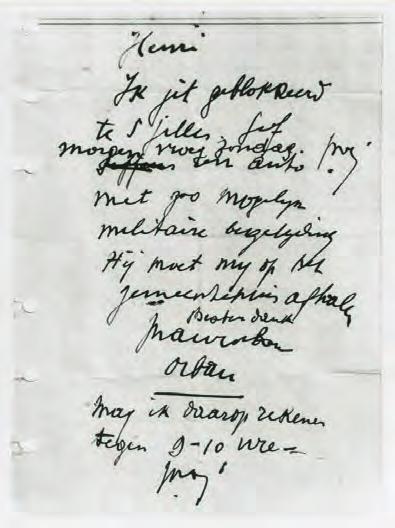 Henri
Ik zit geblokkeerd
te S Jilles. Geef
morgen vroeg zondag.
een auto
met zoo mogelyk
militaire begelyding
Hij moet my op het
gemeentehuis afhalen
Besten dank
Orban
Mag ik daarop rekenen
tegen 9-10 ure =